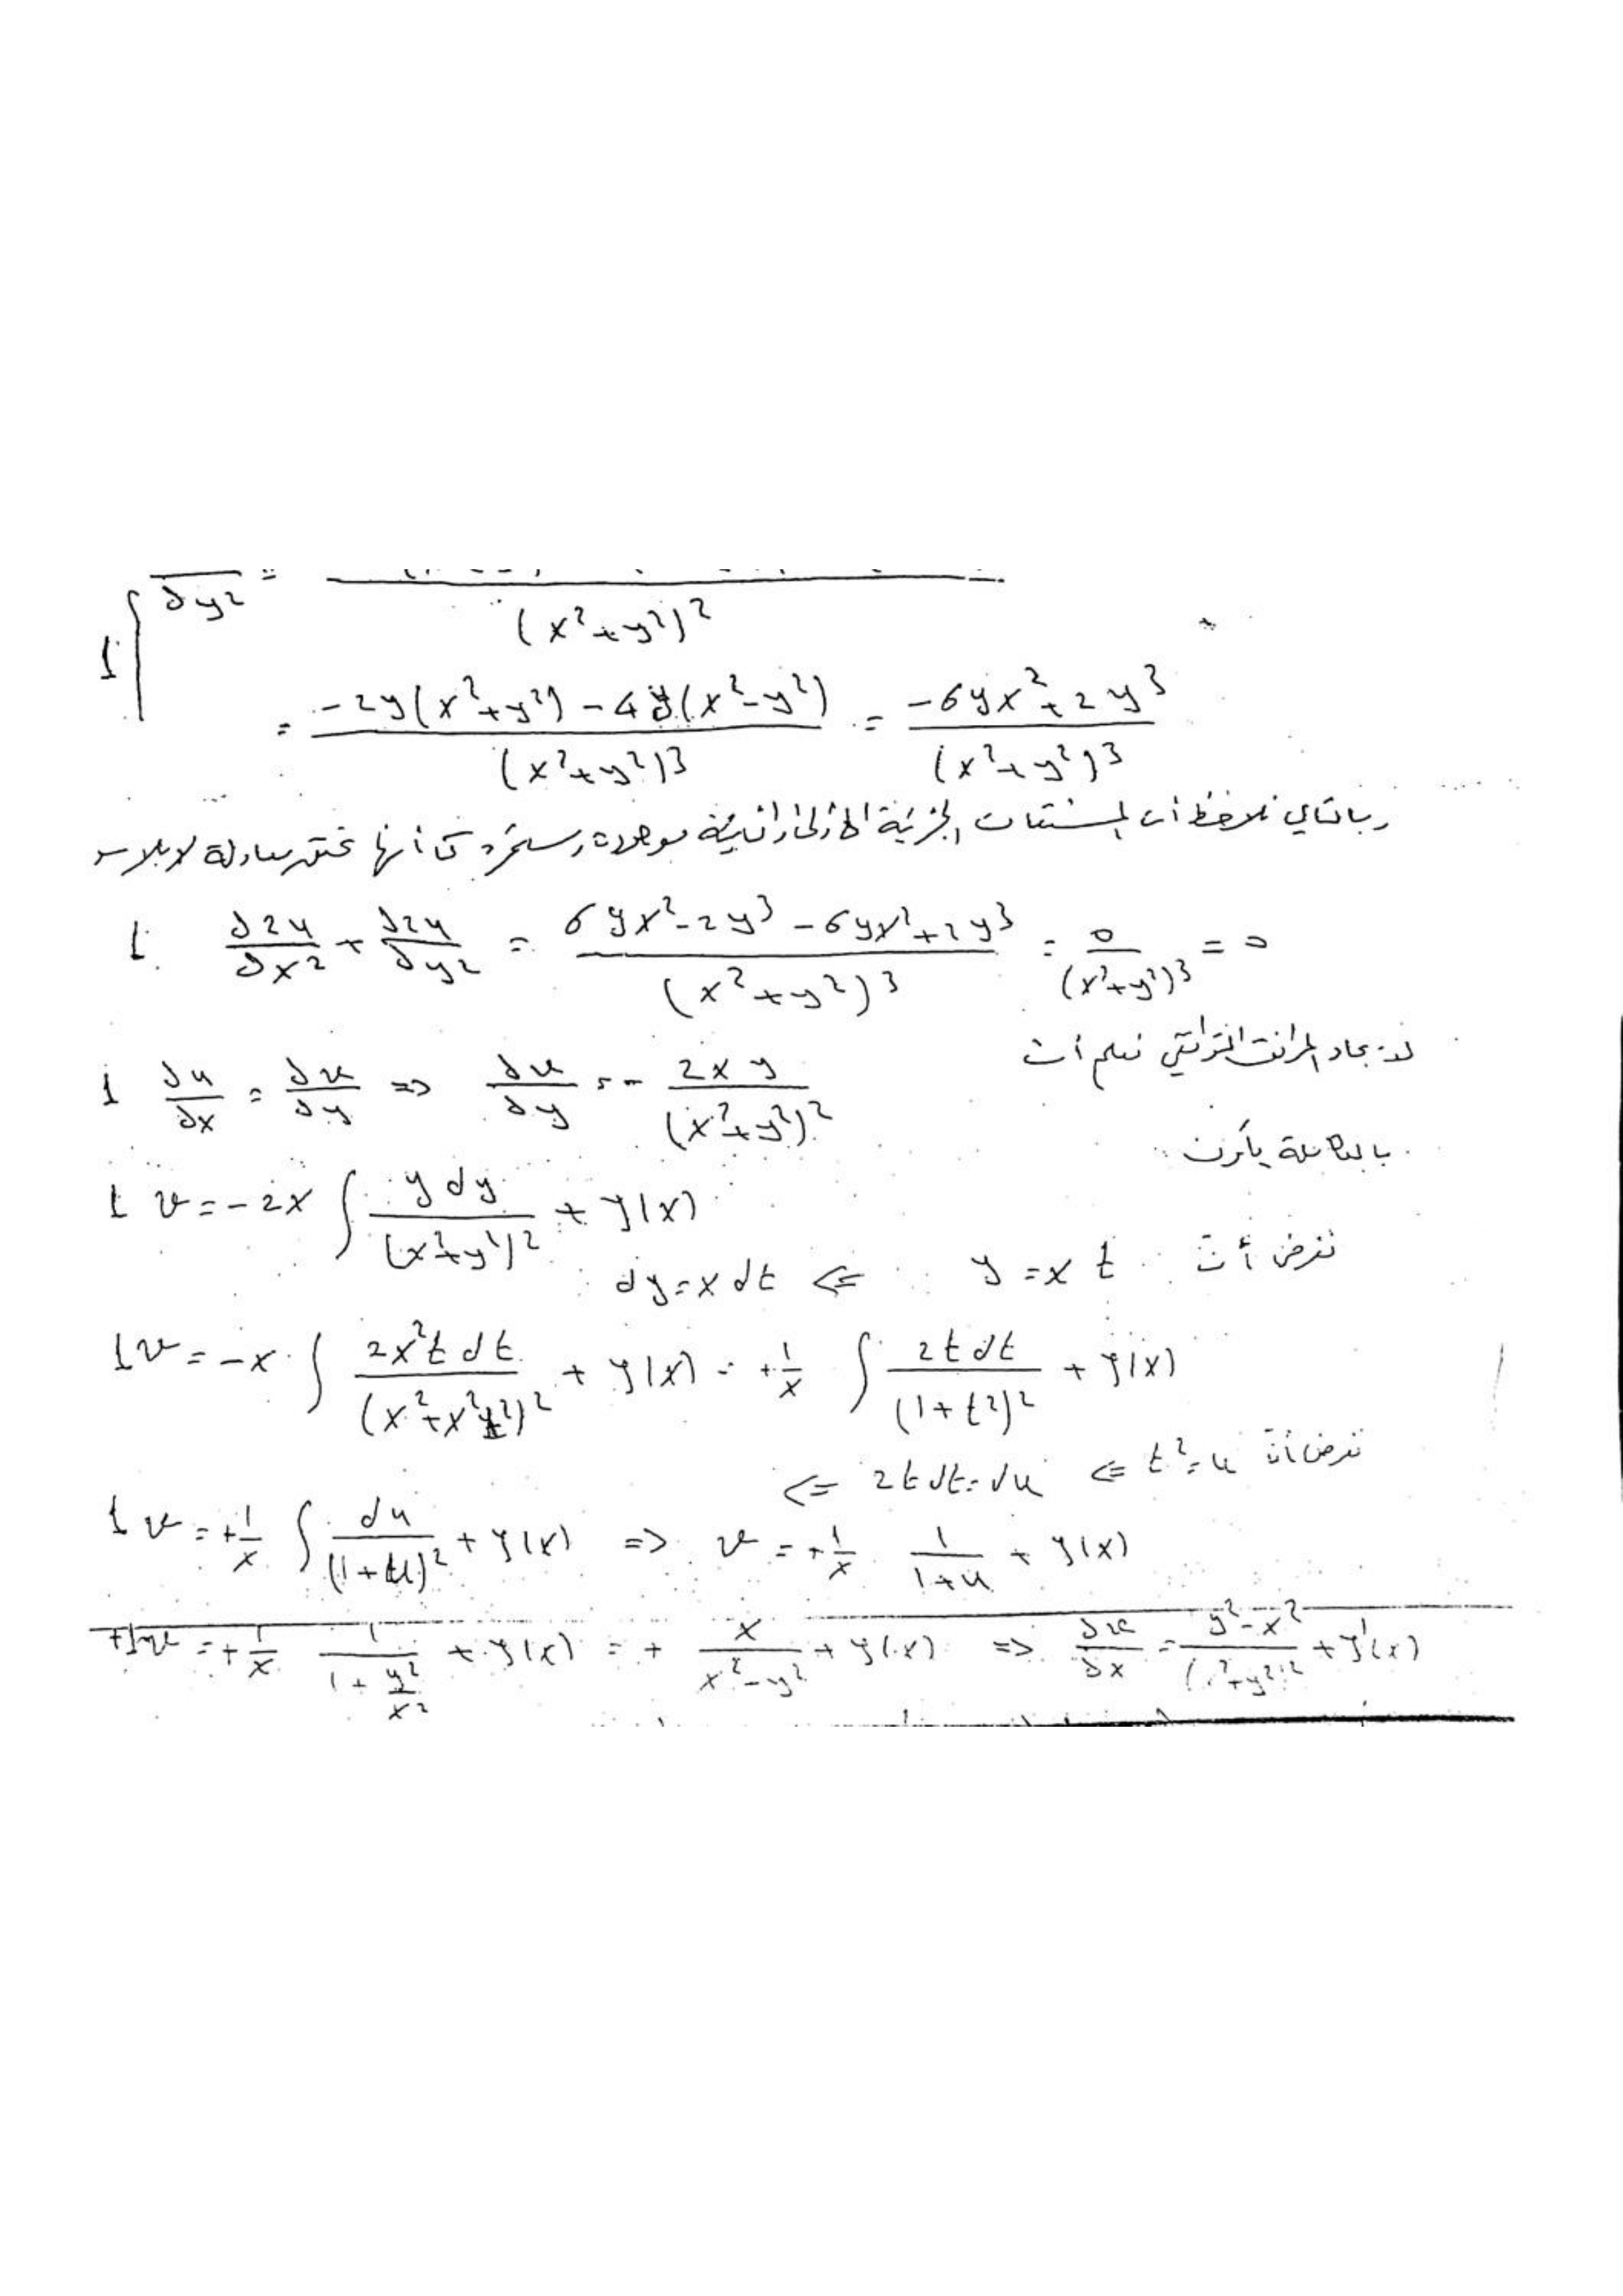 1 ∂y² = (x²+y²)²
= -2y(x²+y²) - 4y(x²-y²) / (x²+y²)³ = -6yx²+2y³ / (x²+y²)³
وبالتالي نلاحظ أن المشتقات الجزئية الأولى والثانية موجودة ومستمرة كما أنها تحقق معادلة لابلاس
1 ∂²u/∂x² + ∂²u/∂y² = 6yx²-2y³-6yx²+2y³ / (x²+y²)³ = 0/(x²+y²)³ = 0
لإيجاد المرافق التوافقي نعلم أن
1 ∂u/∂x = ∂v/∂y => ∂v/∂y = - 2xy/(x²+y²)²
بالمكاملة يكون
1 v = -2x ∫ y dy/(x²+y²)² + φ(x)
نفرض أن y = x t ⇐ dy = x dt
1 v = -x ∫ 2x²t dt/(x²+x²t²)² + φ(x) = +1/x ∫ 2t dt/(1+t²)² + φ(x)
نفرض أن t² = u ⇐ 2t dt = du ⇐
1 v = +1/x ∫ du/(1+u)² + φ(x) => v = +1/x 1/1+u + φ(x)
+1 v = +1/x 1/(1+y²/x²) + φ(x) = + x/(x²-y²) + φ(x) => ∂v/∂x = y²-x²/(²+y²)² + φ'(x)